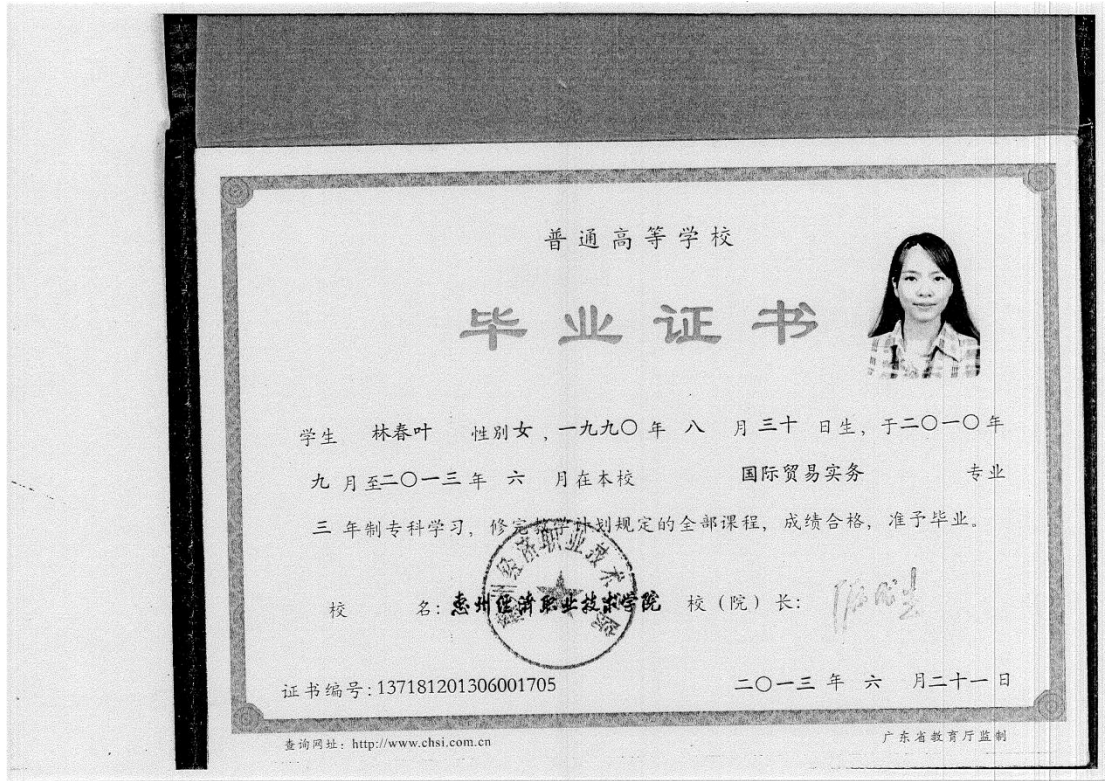 普通高等学校
毕业证书
学生 林春叶 性别女，一九九〇年 八 月三十 日生，于二〇一〇年
九 月至二〇一三年 六 月在本校 国际贸易实务 专业
三 年制专科学习，修完教学计划规定的全部课程，成绩合格，准予毕业。
惠州经济职业技术学院
校 名：惠州经济职业技术学院 校（院）长：
证书编号：137181201306001705 二〇一三 年 六 月二十一日
查询网址：http://www.chsi.com.cn 广东省教育厅监制